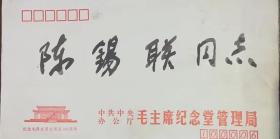 陈锡联同志
中共中央
办公厅 毛主席纪念堂管理局